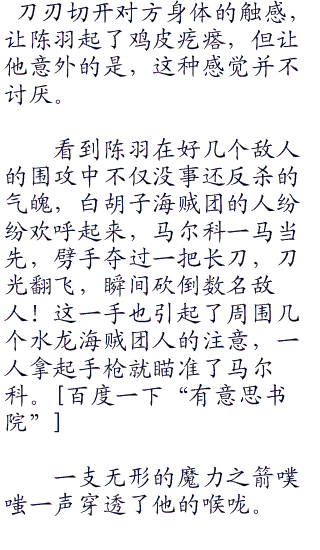 刀刃切开对方身体的触感，
让陈羽起了鸡皮疙瘩，但让
他意外的是，这种感觉并不
讨厌。
看到陈羽在好几个敌人
的围攻中不仅没事还反杀的
气魄，白胡子海贼团的人纷
纷欢呼起来，马尔科一马当
先，劈手夺过一把长刀，刀
光翻飞，瞬间砍倒数名敌
人！这一手也引起了周围几
个水龙海贼团人的注意，一
人拿起手枪就瞄准了马尔
科。[百度一下“有意思书
院”]
一支无形的魔力之箭噗
嗤一声穿透了他的喉咙。